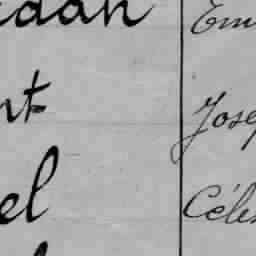 edan Em
nt Josep
el Céles